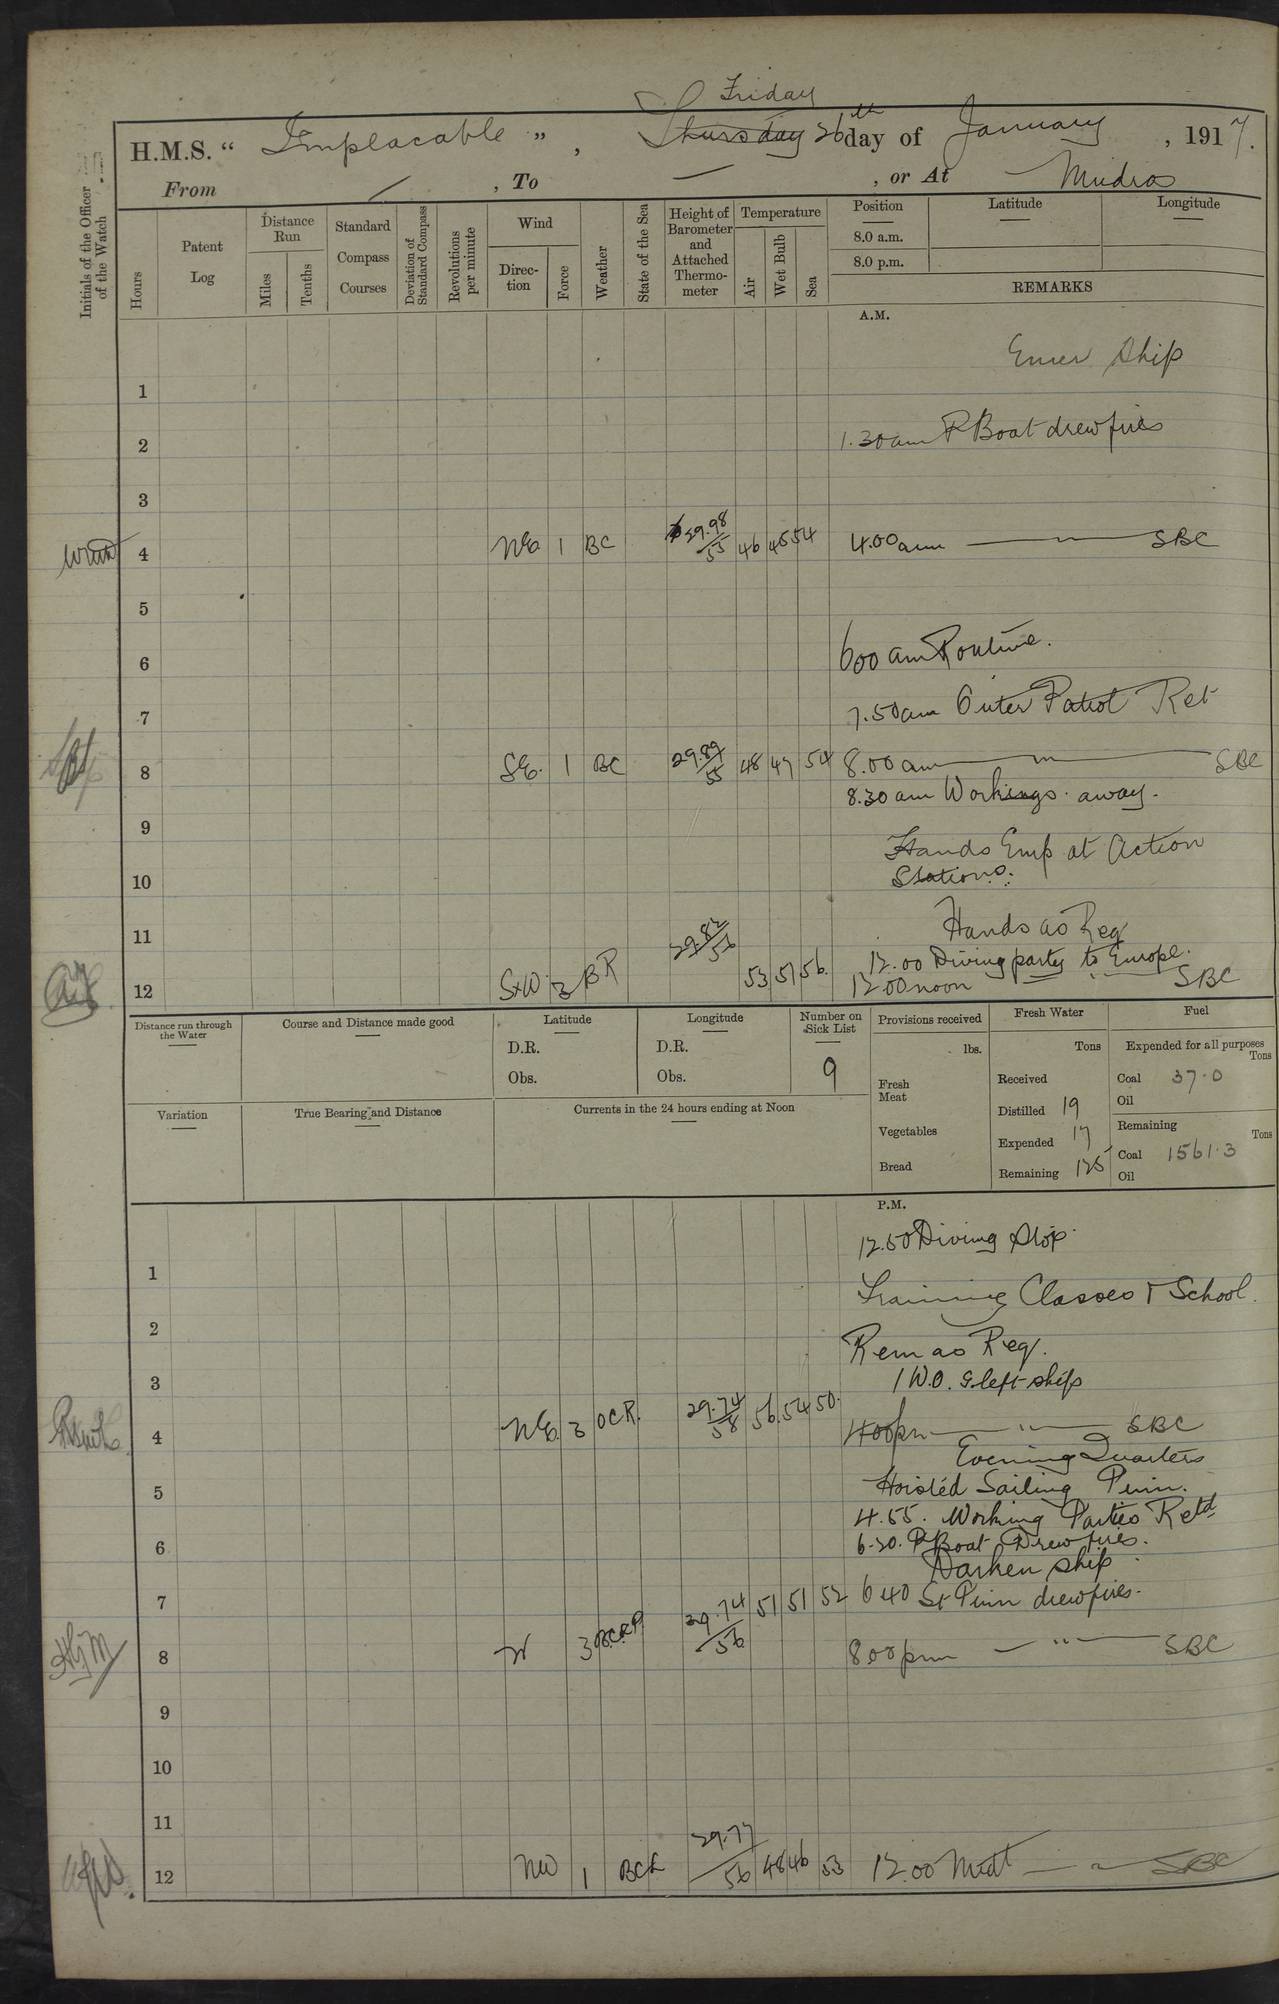 Friday
H.M.S. " Implacable " , Thursday 26th day of January , 1917.
From — , To — , or At Mudros
Initials of the Officer of the Watch
Hours
Patent Log
Distance Run
Miles
Tenths
Standard Compass Courses
Deviation of Standard Compass
Revolutions per minute
Wind
Direction
Force
Weather
State of the Sea
Height of Barometer and Attached Thermometer
Temperature
Air
Wet Bulb
Sea
Position
8.0 a.m.
8.0 p.m.
Latitude
Longitude
REMARKS
A.M.
Ship
1
1.30 am P Boat drew fires
2
3
4 NE. 1 BC 29.98/55 46 45 54 4.00 am — " — SBC
5
6 600 am Routine.
7 7.50 am Outer Patrol Ret
8 SE. 1 BC 29.89/55 48 47 54 8.00 am — " — SBC
8.30 am Workings. away.
9
Hands Emp at Action
10 Stations.
11 Hands as Req
29.82/56 12.00 Diving party to Europe.
12 SxW 3 BR 53 51 56. 1200 noon " SBC
Distance run through the Water
Course and Distance made good
Latitude
D.R.
Obs.
Longitude
D.R.
Obs.
Number on Sick List
9
Provisions received
lbs.
Fresh Meat
Vegetables
Bread
Fresh Water
Tons
Received
Distilled 19
Expended 17
Remaining 125
Fuel
Expended for all purposes
Tons
Coal 37.0
Oil
Remaining
Tons
Coal 1561.3
Oil
Variation
True Bearing and Distance
Currents in the 24 hours ending at Noon
P.M.
12.50 Diving Stop.
1
Training Classes & School.
2
Rem as Req.
3 1 W.O. left ship
4 NE. 3 OCR. 29.74/58 56 54 50. 400 pm — " — SBC
Evening Quarters
5 Hoisted Sailing Pinn.
4.55. Working Parties Retd
6 6-30. P Boat Drew fires.
Darken ship
7 29.74/56 51 51 52 640 St Pinn drew fires.
8 W 3 800 pm — " — SBC
9
10
11
12 NW 1 29.77/56 48 46 53 12.00 Midt — " — SBC